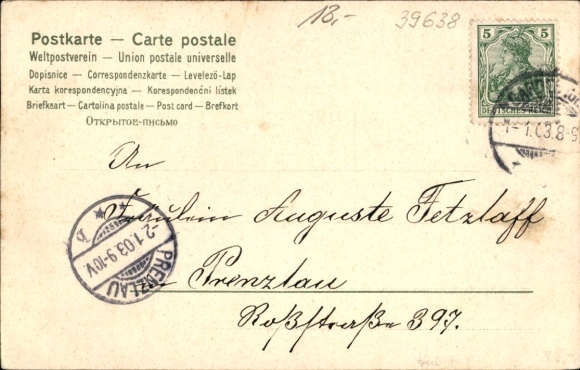 13,-
39638
Postkarte — Carte postale
Weltpostverein — Union postale universelle
Dopisnice — Correspondenzkarte — Levelező-Lap
Karta korespondencyjna — Korespondenční lístek
Briefkaart — Cartolina postale — Post card — Brefkort
Открытое-письмо
5 5
DEUTSCHES REICH
1.03.8-9
An
Fräulein Auguste Fetzlaff
Prenzlau
Roßstraße 397.
-2.1.03.9-10V.
PRENZLAU